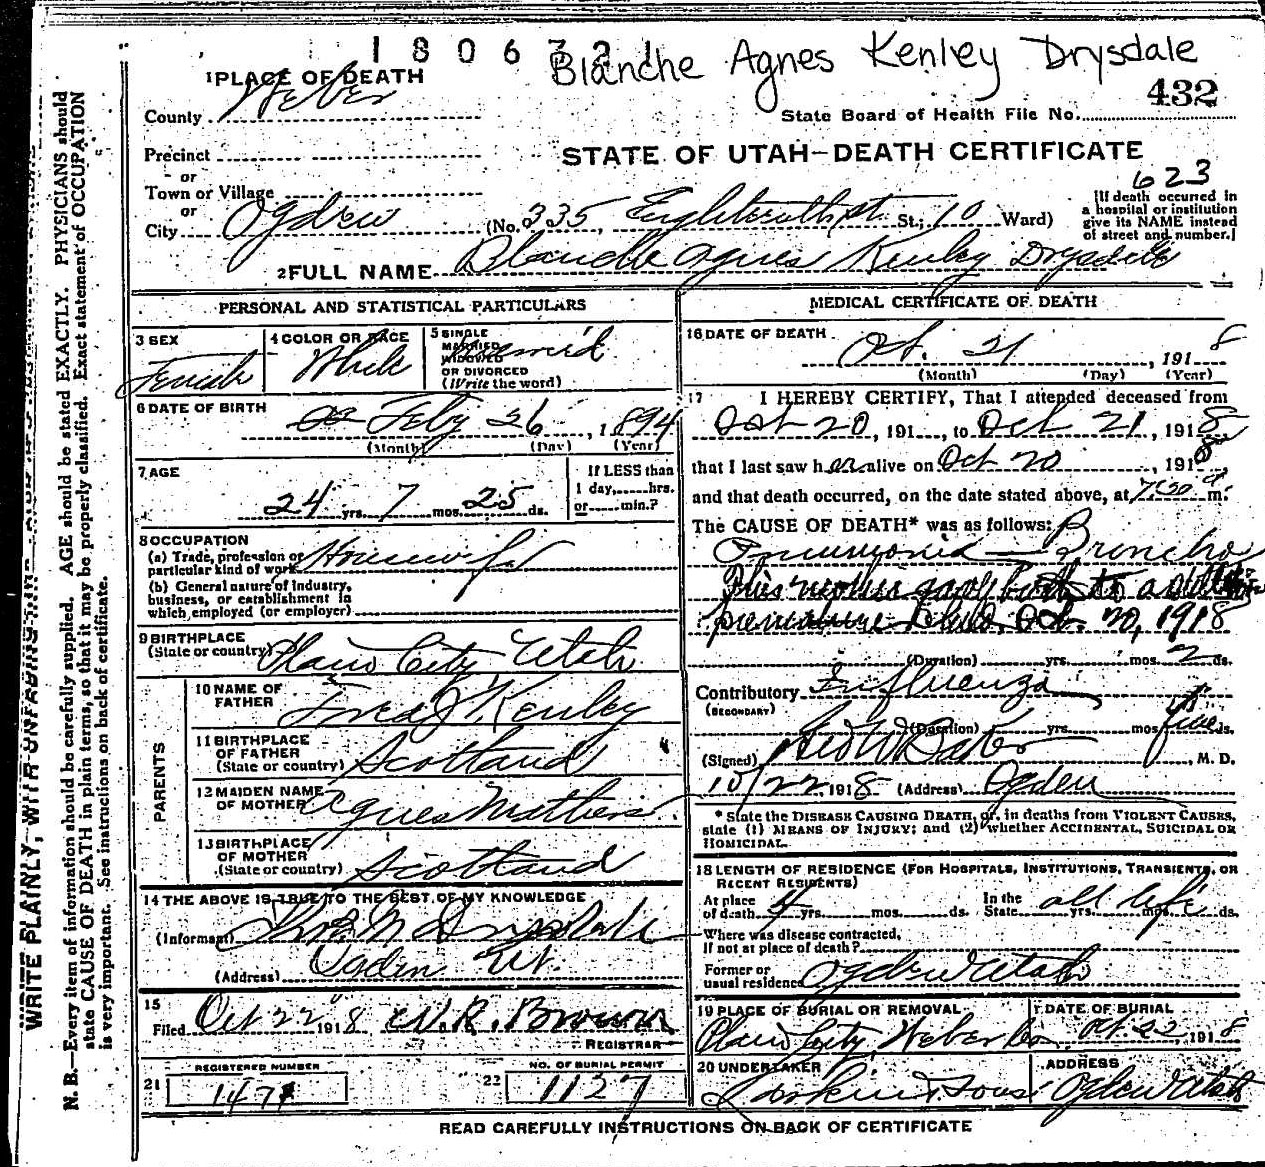 1806321
Blanche Agnes Kenley Drysdale
1 PLACE OF DEATH
432
County Weber
State Board of Health File No.
Precinct
STATE OF UTAH-DEATH CERTIFICATE
or
623
Town or Village
or
City Ogden (No. 335, Eighteenth st St.; 10 Ward)
[If death occurred in
a hospital or institution
give its NAME instead
of street and number.]
2 FULL NAME Blanche Agnes Kenley Drysdale
PERSONAL AND STATISTICAL PARTICULARS
3 SEX
Female
4 COLOR OR RACE
White
5 SINGLE
MARRIED
WIDOWED
OR DIVORCED
(Write the word)
6 DATE OF BIRTH
Feby 26, 1894
(Month) (Day) (Year)
7 AGE
24 yrs. 7 mos. 25 ds.
If LESS than
1 day,......hrs.
or......min.?
8 OCCUPATION
(a) Trade, profession or
particular kind of work Housewife
(b) General nature of industry,
business, or establishment in
which employed (or employer)
9 BIRTHPLACE
(State or country) Plain City, Utah
PARENTS
10 NAME OF
FATHER Fred J. Kenley
11 BIRTHPLACE
OF FATHER
(State or country) Scotland
12 MAIDEN NAME
OF MOTHER Agnes
13 BIRTHPLACE
OF MOTHER
(State or country) Scotland
14 THE ABOVE IS TRUE TO THE BEST OF MY KNOWLEDGE
(Informant) Drysdale
(Address) Ogden Ut.
15
Filed Oct 22 1918 W.R. Brown
REGISTRAR
REGISTERED NUMBER
21 147
NO. OF BURIAL PERMIT
22 1127
MEDICAL CERTIFICATE OF DEATH
16 DATE OF DEATH
Oct. 21, 1918
(Month) (Day) (Year)
17 I HEREBY CERTIFY, That I attended deceased from
Oct 20, 191..., to Oct 21, 1918
that I last saw her alive on Oct 20, 1918,
and that death occurred, on the date stated above, at m.
The CAUSE OF DEATH* was as follows:
Pneumonia - Broncho
This mother gave birth to a
premature child, Oct. 20, 1918
(Duration) yrs. mos. 2 ds.
Contributory Influenza
(SECONDARY)
(Duration) yrs. mos. five ds.
(Signed) M. D.
10/22, 1918 (Address) Ogden
* State the DISEASE CAUSING DEATH, or, in deaths from VIOLENT CAUSES,
state (1) MEANS OF INJURY; and (2) whether ACCIDENTAL, SUICIDAL OR
HOMICIDAL.
18 LENGTH OF RESIDENCE (FOR HOSPITALS, INSTITUTIONS, TRANSIENTS, OR
RECENT RESIDENTS)
At place
of death 4 yrs. mos. ds.
In the
State all life yrs. mos. ds.
Where was disease contracted,
If not at place of death?
Former or
usual residence Ogden Utah
19 PLACE OF BURIAL OR REMOVAL
Plain City, Weber Co.
DATE OF BURIAL
Oct. 22, 1918
20 UNDERTAKER
Larkin & Sons
ADDRESS
Ogden Utah
READ CAREFULLY INSTRUCTIONS ON BACK OF CERTIFICATE
WRITE PLAINLY, WITH UNFADING INK
N. B.—Every item of information should be carefully supplied. AGE should be stated EXACTLY. PHYSICIANS should
state CAUSE OF DEATH in plain terms, so that it may be properly classified. Exact statement of OCCUPATION
is very important. See instructions on back of certificate.